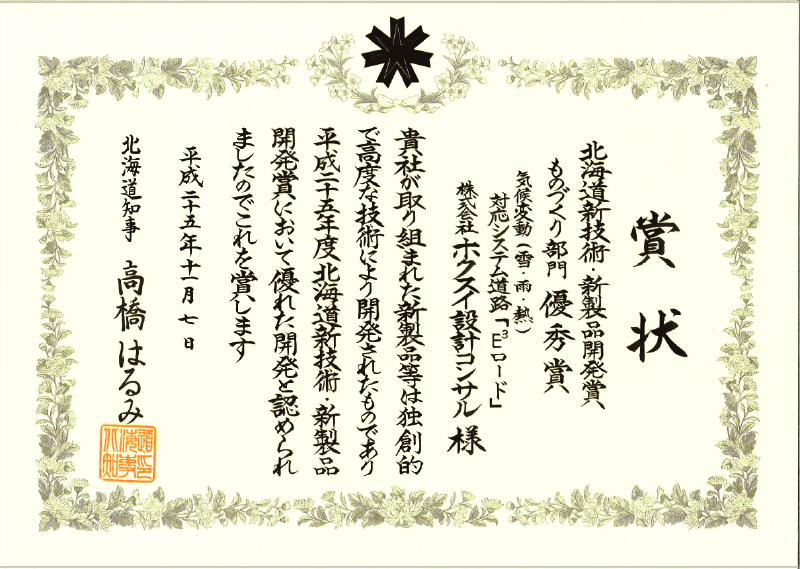 賞状
北海道新技術・新製品開発賞
ものづくり部門 優秀賞
気候変動(雪・雨・熱)
対応システム道路「E³ロード」
株式会社 ホクスイ設計コンサル 様
貴社が取り組まれた新製品等は独創的
で高度な技術により開発されたものであり
平成二十五年度北海道新技術・新製品
開発賞において優れた開発と認められ
ましたのでこれを賞します
平成二十五年十一月七日
北海道知事 高橋はるみ